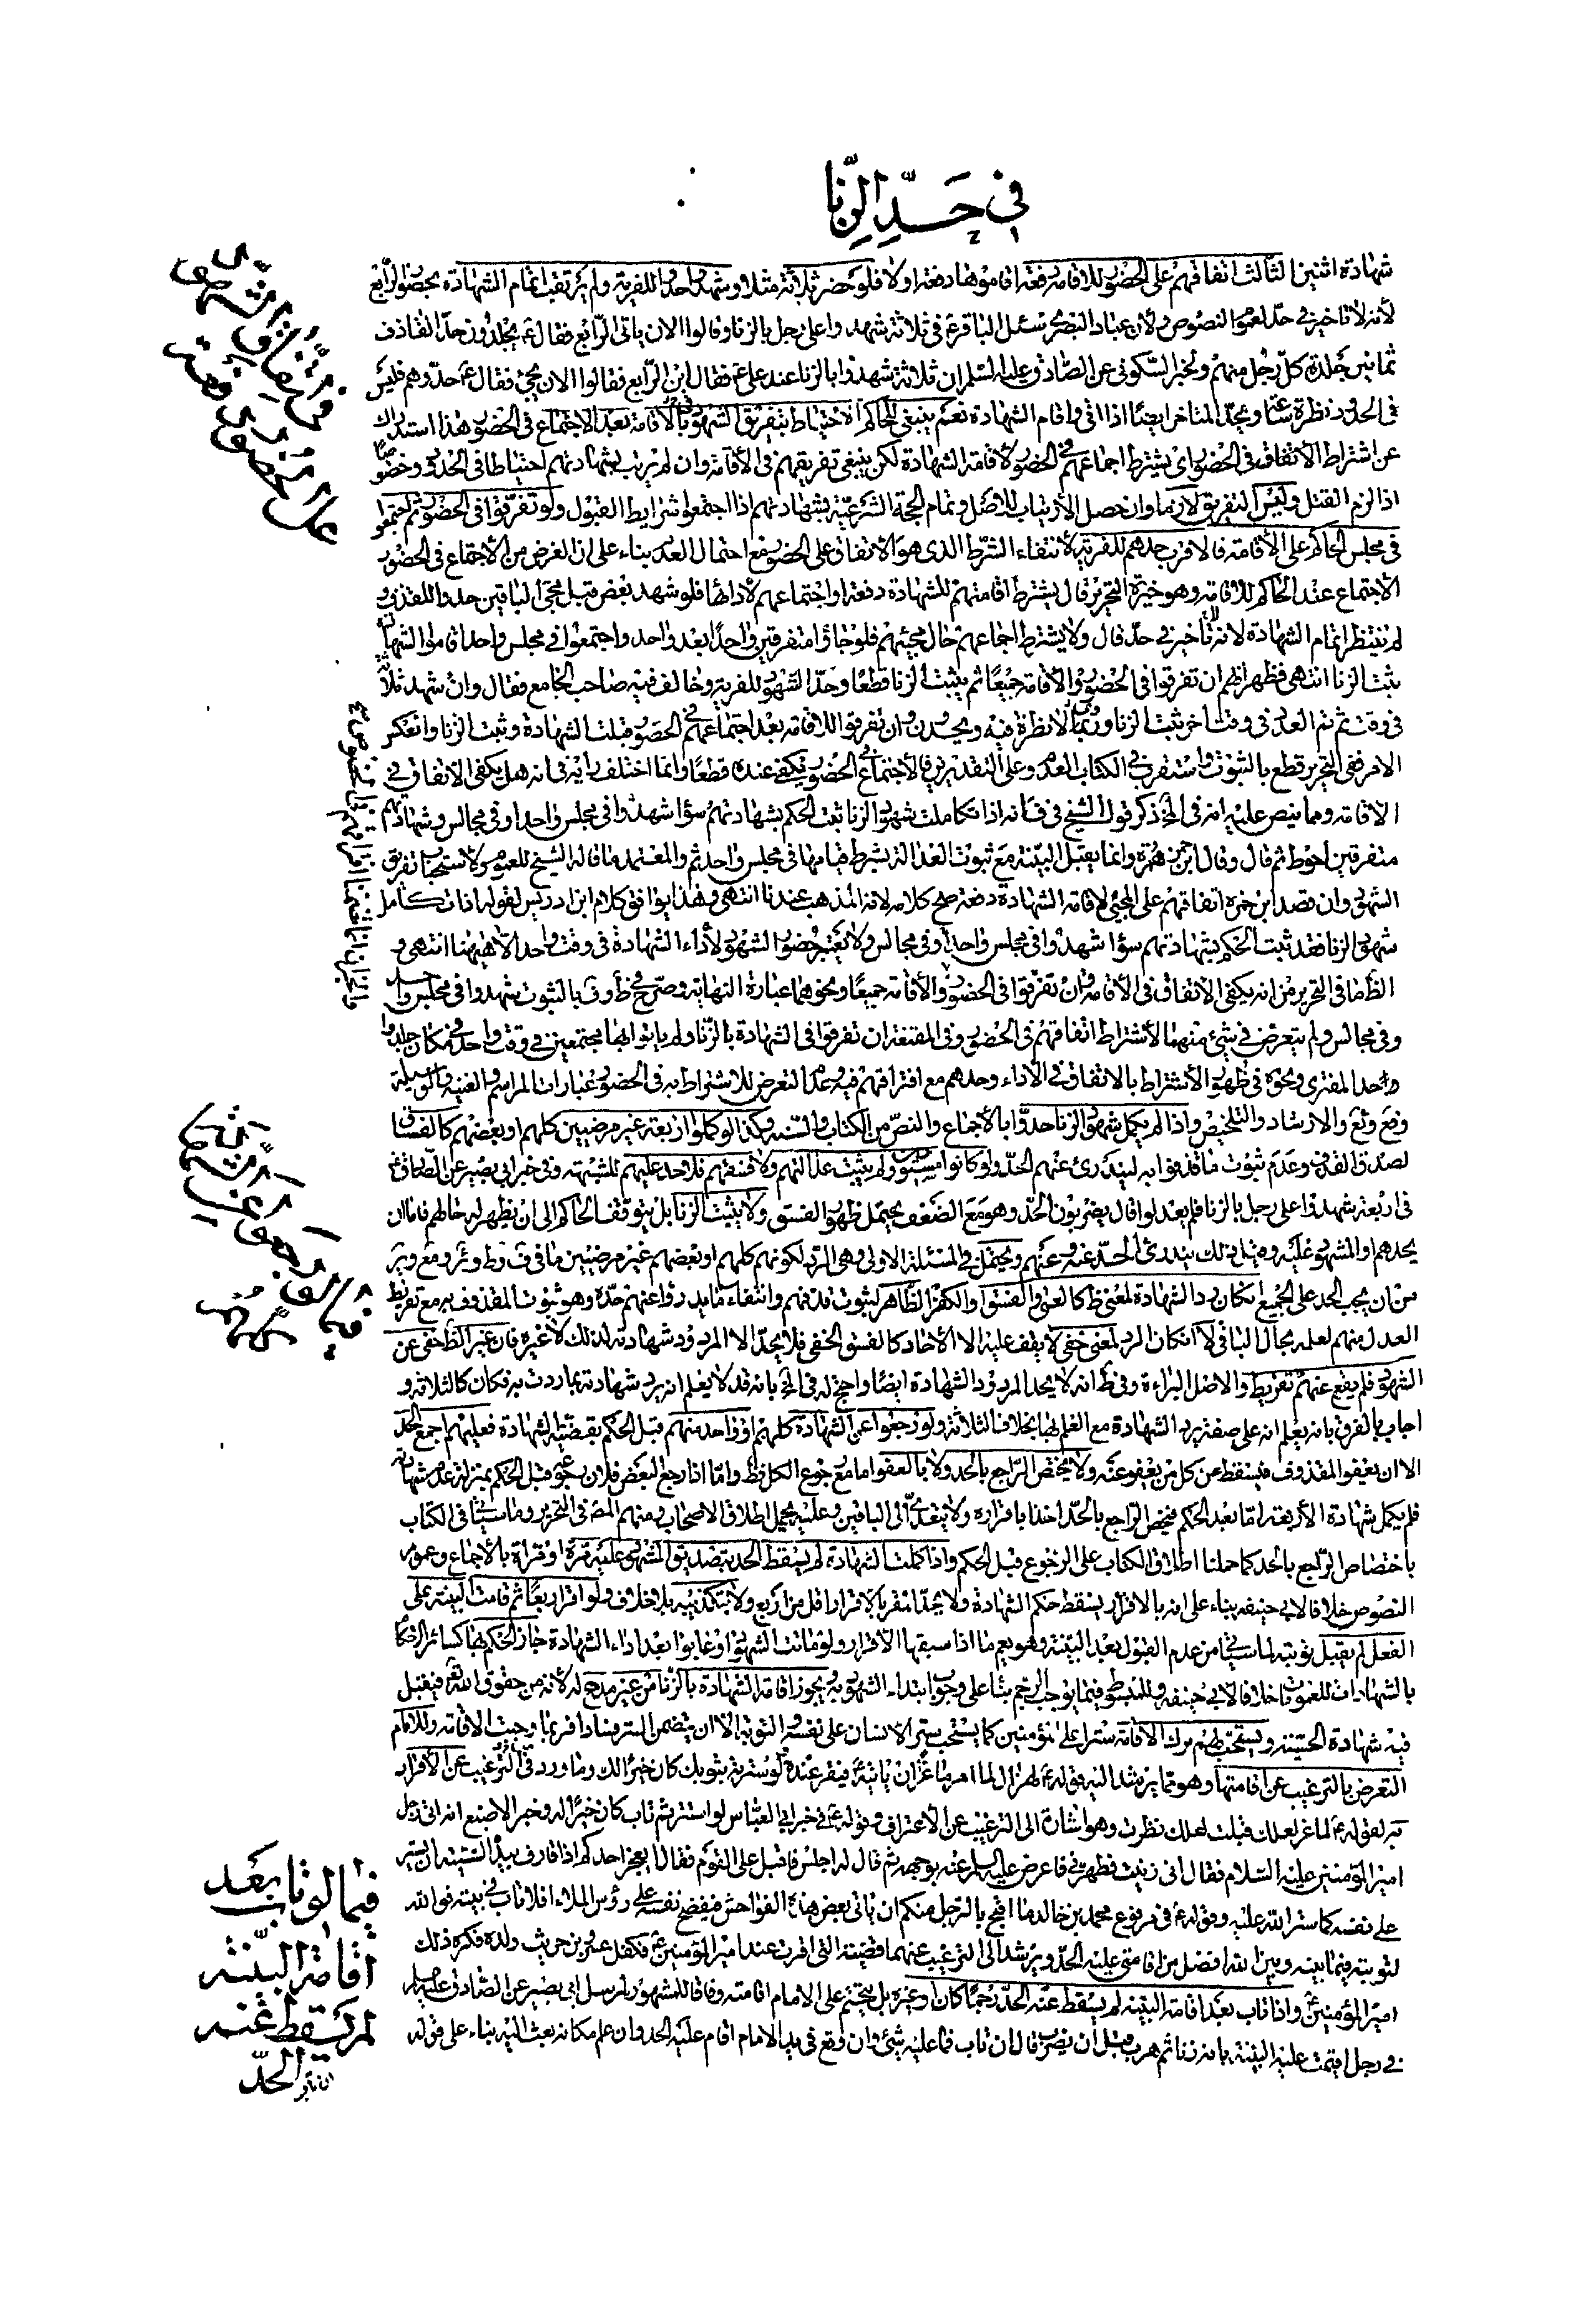 في حد الزنا
شهادة اثنين الثالث اتفاقهم على الحضور للاقامة دفعة اقاموها دفعة اولا فلو حضر ثلاثة مثلا وشهدوا حدوا للفرية ولم يرتقب اتمام الشهادة بحضور الرابع
لانه لا تاخير في حد لعموم النصوص ولان عباد البصري سئل الباقر ع في ثلاثة شهدوا على رجل بالزنا وقالوا الان ياتي الرابع فقال ع يجلدون حد القاذف
ثمانين جلدة كل رجل منهم ولخبر السكوني عن الصادق عليه السلم ان ثلاثة شهدوا بالزنا عند علي ع فقال اين الرابع فقالوا الان يجئ فقال ع حدوهم فليس
في الحدود نظرة ساعة ويحد المتاخر ايضا اذا اتى واقام الشهادة نعم ينبغي للحاكم الاحتياط بتفريق الشهود في الاقامة بعد الاجتماع في الحضور هذا استدراك
عن اشتراط الاتفاق في الحضور اى يشترط اجتماعهم في الحضور لاقامة الشهادة لكن ينبغي تفريقهم في الاقامة وان لم يرتب بشهادتهم احتياطا في الحدود وخصوصا
اذا لزم القتل وليس التفريق لازما وان حصل الارتياب للاصل وتمام الحجة الشرعية بشهادتهم اذا اجتمعوا شرايط القبول ولو تفرقوا في الحضور ثم اجتمعوا
في مجلس الحاكم على الاقامة فالاقرب حدهم للفرية لانتفاء الشرط الذى هو الاتفاق على الحضور مع احتمال العدم بناء على ان الغرض من الاجتماع في الحضور
الاجتماع عند الحاكم للاقامة وهو خيرة التحرير قال يشترط اقامتهم للشهادة دفعة واجتماعهم لادائها فلو شهد بعض قبل مجئ الباقين حدوا للقذف و
لم ننتظر اتمام الشهادة لانه لا تاخير في حد قال ولا يشترط اجتماعهم حال مجيئهم فلو جاؤا متفرقين واحدا بعد واحد واجتمعوا في مجلس واحد اقاموا الشهادة
يثبت الزنا انتهى فظهر لهم ان تفرقوا في الحضور والاقامة جميعا ثم يثبت الزنا قطعا وحد الشهود للفرية وخالف فيه صاحب الجامع فقال وان شهد ثلاثة
في وقت ثم تم العدد في وقت اخر ثبت الزنا وربما لا نظرة فيه ويحدون وان تفرقوا للاقامة بعد اجتماعهم في الحضور قبلت الشهادة وثبت الزنا وانعكس
الامر ففي التحرير قطع بالثبوت واستقرب في الكتاب العدم وعلى التقديرين فالاجتماع في الحضور يكفي عنده قطعا وانما اختلف رايه في انه هل يكفي الاتفاق في
الاقامة ومما ينص عليه انه في المخ ذكر قول الشيخ في ف انه اذا تكاملت شهود الزنا ثبت الحكم بشهادتهم سواء شهدوا في مجلس واحد او في مجالس وشهادتهم
متفرقين احوط ثم قال وقال ابن حمزة وانما يقبل البينة مع ثبوت العدالة بشرط قيامها في مجلس واحد ثم والمعتمد ما قاله الشيخ للعموم ولاستحباب تفريق
الشهود وان قصد ابن حمزة اتفاقهم على المجئ لاقامة الشهادة دفعة صح كلامه لانه المذهب عندنا انتهى وهذا يوافق كلام ابن ادريس لقوله اذا تكامل
شهود الزنا فقد ثبت الحكم بشهادتهم سواء شهدوا في مجلس واحد او في مجالس ولا يعتبر حضور الشهود لاداء الشهادة في وقت واحد الا ههنا انتهى و
الظ ما في التحرير من انه يكفي الاتفاق في الاقامة وان تفرقوا في الحضور والاقامة جميعا ونحوهما عبارة النهاية وصرح في ط وف بالثبوت شهدوا في مجلس واحد
وفي مجالس ولم يتعرض في شئ منهما لاشتراط اتفاقهم في الحضور وفي المقنعة ان تفرقوا في الشهادة بالزنا ولم ياتوا بها مجتمعين في وقت واحد في مكان واحد جلدوا
حد المفترى ونحوه في ظهور الاشتراط بالاتفاق في الاداء وحدهم مع افتراقهم فيه وعدم التعرض للاشتراط به في الحضور عبارات المراسم والغنية والوسيلة
وقع وئع والارشاد والتلخيص واذا لم يكمل شهود الزنا حدوا بالاجماع والنص من الكتاب والسنة وكذا لو كملوا اربعة غير مرضيين كلهم او بعضهم كالفساق
لصدق القذف وعدم ثبوت ما قذفوا به ليندرئ عنهم الحد ولو كانوا مستورين ولم يثبت عدالتهم ولا فسقهم فلا حد عليهم للشبهة وفي خبر ابي بصير عن الصادق ع
في اربعة شهدوا على رجل بالزنا فلم يعدلوا قال يضربون الحد وهو مع الضعف يحتمل ظهور الفسق ولا يثبت الزنا بل يتوقف الحاكم الى ان يظهر له حالهم فاما ان
يحدهم او المشهود عليه وبذلك يندرئ الحد عنه وعنهم ويحتمل في المسئلة الاولى وهي الرد لكونهم كلهم او بعضهم غير مرضيين ما في ف وط وئر ومع وير
من ان يجب الحد على الجميع ان كان رد الشهادة لمعنى ظ كالعمى والفسق والكفر الظاهر لثبوت قذفهم وانتفاء ما يدرؤا عنهم حده وهو ثبوت المقذوف به مع تفريط
العدل منهم لعلمه بحال الباقي لا ان كان الرد لمعنى خفي لا يقف عليه الا الاحاد كالفسق الخفي فلا يحد الا المردود شهادته لذلك لا غيره فان غير الظ خفي عن
الشهود فلم يقع عنهم تفريط والاصل البراءة وفي ط انه لا يحد المردود الشهادة ايضا واحتج له في المخ بانه قد لا يعلم انه يرد شهادته بما ردت به فكان كالثلاثة و
اجاب بالفرق بانه يعلم انه على صفة يرد الشهادة مع العلم بها بخلاف الثلاثة ولو رجعوا عن الشهادة كلهم او واحد منهم قبل الحكم بقضية الشهادة فعليهم اجمع الحد
الا ان يعفو المقذوف فيسقط عن كل من يعفو عنه ولا يختص الراجع بالحد ولا بالعفو اما مع رجوع الكل فظ واما اذا رجع البعض فلان رجوعه قبل الحكم بمنزلة عدم شهادته
فلم يكمل شهادة الاربعة اما بعد الحكم فيختص الراجع بالحد اخذا باقراره ولا يتعدى الى الباقين وعليه يحمل اطلاق الاصحاب ومنهم المص في التحرير وما سيئاتي في الكتاب
باختصاص الراجع بالحد كما حملنا اطلاق الكتاب على الرجوع قبل الحكم واذا كملت الشهادة لم يسقط الحد بتصديق المشهود عليه مرة او مرات بالاجماع وعموم
النصوص خلافا لابي حنيفة بناء على انه بالاقرار يسقط حكم الشهادة ولا يحد المقر بالاقرار اقل من اربع ولا بتكذيبه بلا خلاف ولو اقر اربعا ثم قامت البينة على
الفعل لم يقبل توبته لما سيئاتي من عدم القبول بعد البينة وهو يعم ما اذا سبقها الاقرار ولو ماتت الشهود او غابوا بعد اداء الشهادة جاز الحكم بها كسائر الاحكام
بالشهادات للعمومات خلافا لابي حنيفة وللمبسوط فيما يوجب الرجم بناء على وجوب ابتداء الشهود به ويجوز اقامة الشهادة بالزنا من غير مدع له لانه من حقوق الله تعالى فيقبل
فيه شهادة الحسبة ويستحب لهم ترك الاقامة سترا على المؤمنين كما يستحب ستر الانسان على نفسه والتوبة الا ان يتضمن الستر فسادا فربما وجبت الاقامة وللامام
التعرض بالترغيب عن اقامتها وهو مما يرشد اليه قوله ع لهزال لما امر ماعزا ان ياتيه فيقر عنده لو سترته بثوبك كان خيرا لك وما ورد في الترغيب عن الاقرار
به لقوله ع لماعز لعلك قبلت لعلك نظرت وهو اشارة الى الترغيب عن الاعتراف وقوله ع في خبر ابي العباس لو استتر ثم تاب كان خيرا له وخبر الاصبغ انه اتى رجل
امير المؤمنين عليه السلام فقال اني زنيت فطهرني فاعرض عليه السلم عنه بوجهه ثم قال له اجلس فاقبل على القوم فقال ايعجز احدكم اذا قارف هذه السيئة ان يستر
على نفسه كما ستر الله عليه وقوله ع في مرفوع محمد بن خالد ما اقبح بالرجل منكم ان ياتي بعض هذه الفواحش فيفضح نفسه على رؤس الملاء افلا تاب في بيته فوالله
لتوبته فيما بينه وبين الله افضل من اقامتي عليه الحد ويرشد الى الترغيب عنهما قضية التي اقرت عند امير المؤمنين ع فكفل عمرو بن حريث ولده فكره ذلك
امير المؤمنين ع واذا تاب بعد اقامة البينة لم يسقط عنه الحد رجما كان او غيره بل يتحتم على الامام اقامته وفاقا للمشهور لمرسل ابي بصير عن الصادق عليه السلم
في رجل اقيمت عليه البينة بانه زنا ثم هرب قبل ان يضرب قال ان تاب فما عليه شئ وان وقع في يد الامام اقام عليه الحد وان علم مكانه بعث اليه بناء على قوله
فيما لو تاب بعد
اقامة البينة
لم يسقط عنه
الحد